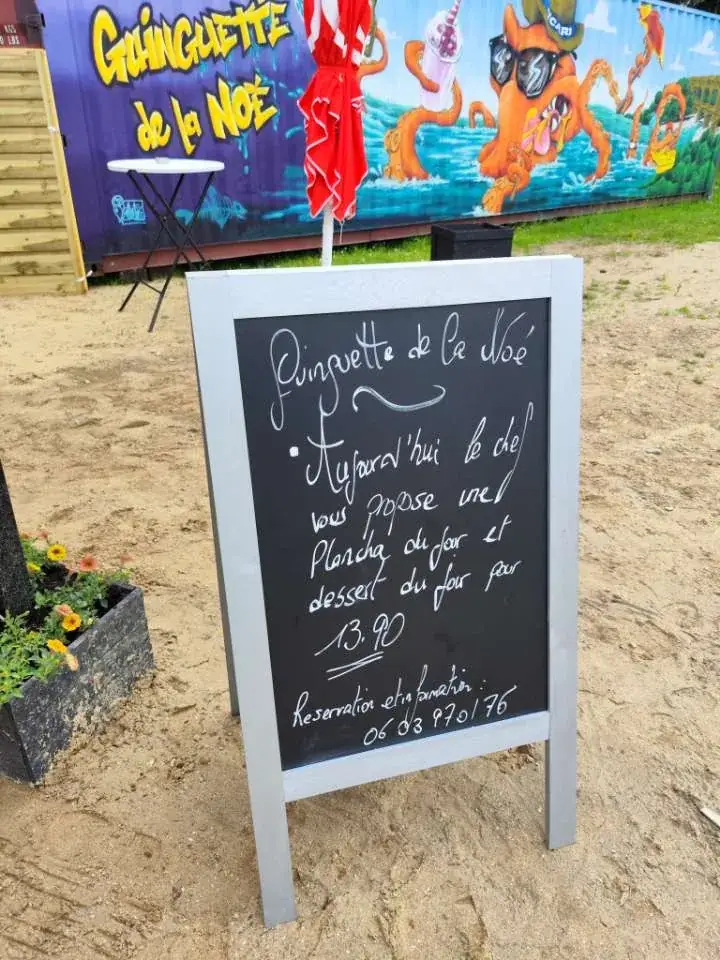 GUINGUETTE
de la NOÉ
ICARD
Guinguette de la Noé
• Aujourd'hui le chef
vous propose une
Plancha du jour et
dessert du jour pour
13.90
Reservation et information :
06 03 970176